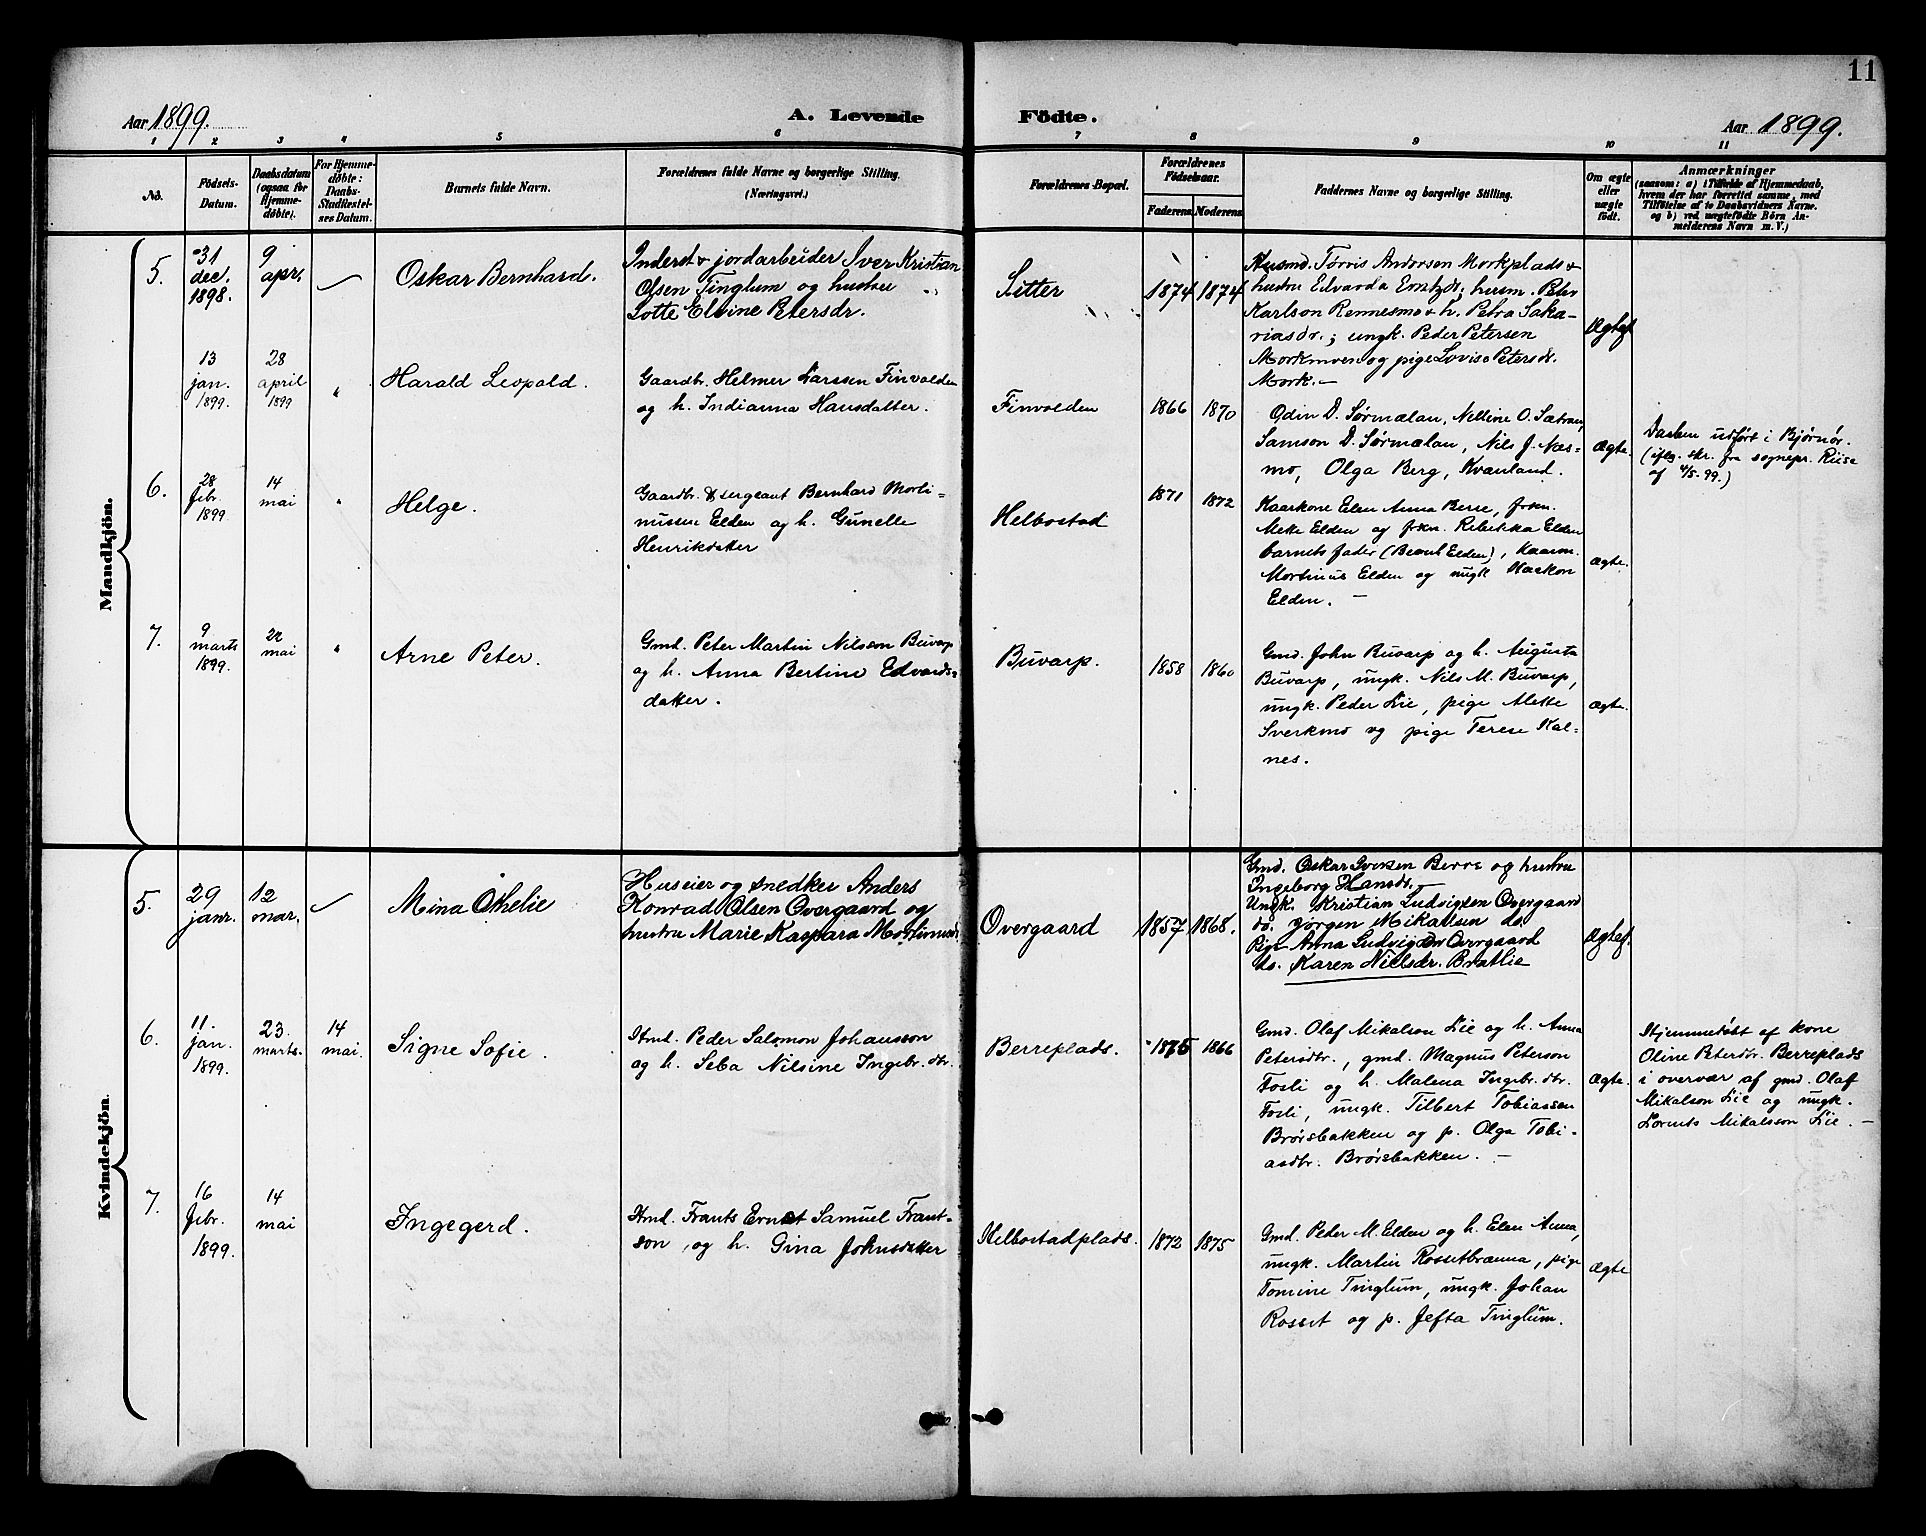 11
Aar 1899.
A. Levende
Födte.
Aar 1899.
1 2 3 4 5 6 7 8 9 10 11
No.
Födsels-Datum.
Daabsdatum (ogsaa for Hjemme-döbte).
For Hjemme-döbte: Daabs-Stadfæstel-ses Datum.
Barnets fulde Navn.
Forældrenes fulde Navne og borgerlige Stilling. (Næringsvei.)
Forældrenes Bopæl.
Forældrenes Födselsaar.
Faderens
Moderens
Faddernes Navne og borgerlige Stilling.
Om ægte eller uægte födt.
Anmærkninger
(saasom: a) i Tilfælde af Hjemmedaab,
hvem der har forrettet samme, med
Tilföielse af to Daabsvidners Navne.
og b) ved uægtefödte Börn An-
melderens Navn m. V.)
Mandkjön.
5.
31 dec. 1898.
9 apr.
Oskar Bernhard.
Inderst & jordarbeider Iver Kristian
Olsen Tinglum og hustru
Lotte Elvine Petersdr.
Sitter
1874 1874
Husmd. Tørris Andorsen Morkplads &
hustru Edvarda Erntzdr; husm. Peter
Karlson Rennesmo & h. Petra Saka-
riasdr.; ungk. Peder Petersen
Morkmoen og pige Lovise Petersdr.
Mork.-
Ægtef.
13 jan. 1899.
28 april 1899
"
Harald Leopold.
Gaardbr. Helmer Larssen Finvolden
og h. Indianna Hansdatter.
Finvolden
1866 1870
Odin D. Sørmælan, Nelline O. Sætran,
Samson D. Sørmælan, Nils J. Næs-
mo, Olga Berg, Kvanland.
Ægte.
Daaben udført i Bjørnør.
(ifølg. skr. fra sognepr. Riise
af 4/5-99.)
6.
28 febr. 1899
14 mai
"
Helge.
Gaardbr. & sergeant Bernhard Morti-
nussen Elden og h. Gunelle
Henrikdatter
Helbostad
1871 1872
Kaarkone Elen Anna Berre, frkn.
Mette Elden og frkn. Rebekka Elden
barnets fader (Bernh Elden), Kaarm.
Mortinus Elden og ungk Haakon
Elden. -
Ægte.
7.
9 marts 1899.
22 mai
"
Arne Peter.
Gmd. Peter Martin Nilsson Buvarp
og h. Anna Bertine Edvards-
datter.
Buvarp.
1858 1860
Gmd. John Buvarp og h. Augusta
Buvarp, ungk. Nils M. Buvarp,
ungk. Peder Lie, pige Alette
Sverkmo og pige Terese Kal-
nes.
Ægte.
Kvindekjön.
5.
29 janr.
12 mar.
Mina Othelie
Huseier og snedker Anders
Konrad Olsen Overgaard og
hustru Marie Kaspara Mortinusd.
Overgaard
1857 1868.
Gmd. Oskar Iversen Berre og hustru
Ingeborg Hansdr.
Ungk. Kristian Ludvigsen Overgaard
do. Jörgen Mikalsen do.
Pige Anna Ludvigsdr Overgaard
do. Karen Nielsdr. Bratlie
Ægtef.
6.
11. jan. 1899.
23. marts.
14 mai.
Signe Sofie.
Hmd. Peder Salomon Johansson
og h. Seba Nilsine Ingebr.dtr.
Berreplads.
1875 1866
Gmd. Olaf Mikalson Lie og h. Anna
Petersdtr., gmd. Magnus Peterson
Fosli og h. Malena Ingebr.dtr.
Fosli, ungk. Tilbert Tobiassen
Brörsbakken og p. Olga Tobi-
asdtr. Brörsbakken. -
Ægte.
Hjemmedøbt af kone
Oline Petersdtr. Berreplads
i overvær af gmd. Olaf
Mikalson Lie og ungk.
Lornts Mikalsson Lie. -
7.
16 febr. 1899.
14 mai
Ingegerd.
Hmd. Frants Ernst Samuel Frant-
son, og h. Gina Johnsdatter
Helbostadplads.
1872 1875
Gmd. Peder M. Elden og h. Elen Anna,
ungk. Martin Rossetbrænna, pige
Tomine Tinglum, ungk. Johan
Rosset og p. Jefta Tinglum.
Ægte